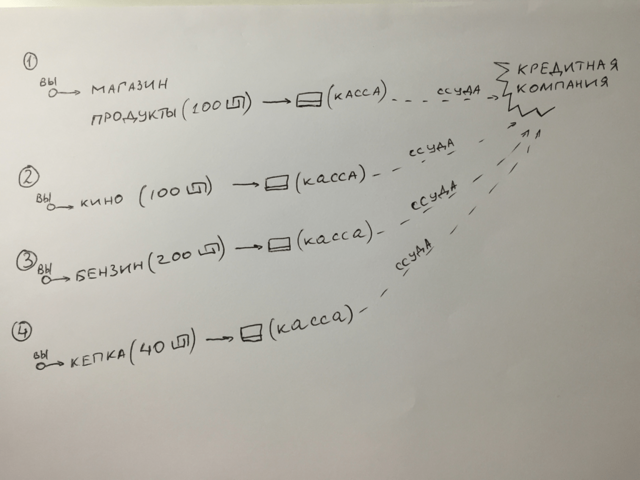 ①
ВЫ
МАГАЗИН
ПРОДУКТЫ (100 ₪) → (КАССА) ССУДА
КРЕДИТНАЯ
КОМПАНИЯ
②
ВЫ
КИНО (100 ₪) → (КАССА) ССУДА
③
ВЫ
БЕНЗИН (200 ₪) → (КАССА) ССУДА
④
ВЫ
КЕПКА (40 ₪) → (КАССА) ССУДА